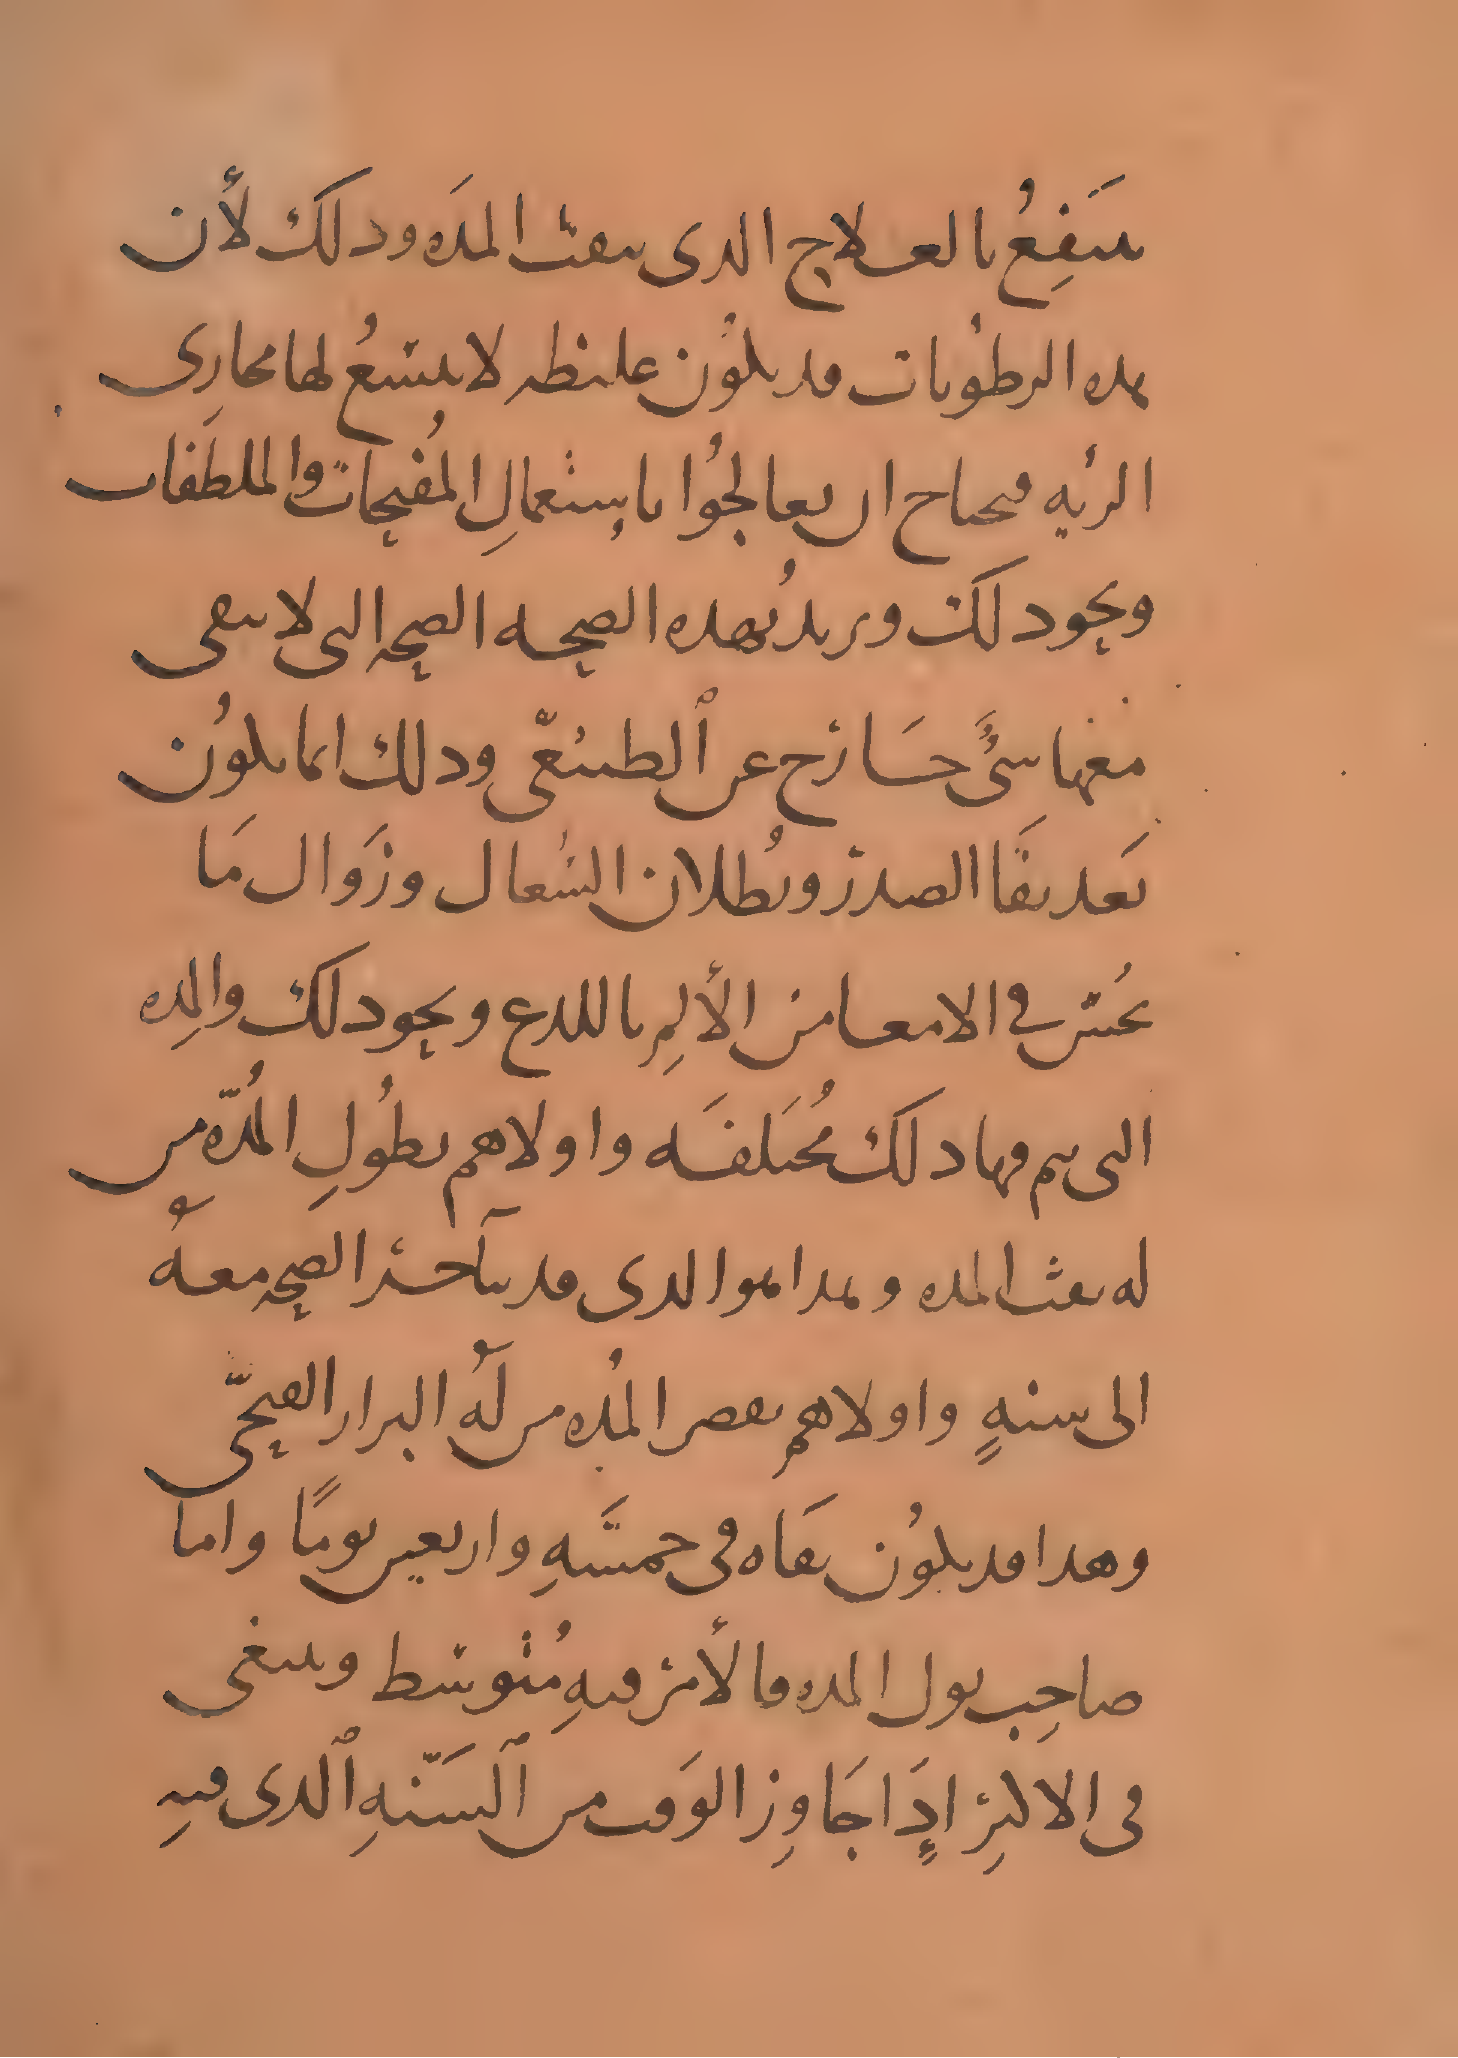 ىىىَفِعُ بالعلاج الدى ىىفث المدَه ودلك لأن
هده الرطُوبات قد ىكوُن غليظه لا ىتسعُ لها مجارِى
الرئيه فىحتاج ان يعالجوُا باستعمالِ المُفتِحات والملطَفات
ونحود لكَ ويريدُ بهده الصحه الصحه الىى لا ىبقى
معها شىءً خَارج عن ٱلطبيعّى ودلك انما ىكوُن
بَعد ىقَا الصدر وبُطلان السُعال وزَوال مَا
يُحسّ فى الامعا من الأَلِم باللدع ونحود لكَ والمِده
التى ىتم فيها دلك مُخىَلفَه واولاهم بطُولِ المُدّه من
له ىفث المده وهدا هوا لدى قد ىتآخر الصحه معهُ
الى سنهٍ واولاهم بقصر المُده من لَهُ البراز القيحّى
وهدا قد ىكوُن ىقَاه فى خمسَهِ واربعين يومًا واما
صاحِب بول المده فالأَمر فيهِ مُتوسّط وينبغى
فى الاكثِر اِدَا جَاوِز الوَقت من ٱلسَنّهِ ٱلدى فيهِ